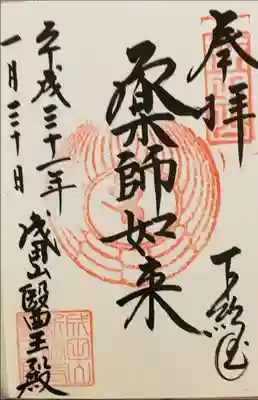 奉拝
下総国
薬師如来
平成三十一年
一月三十日
成田山醫王殿